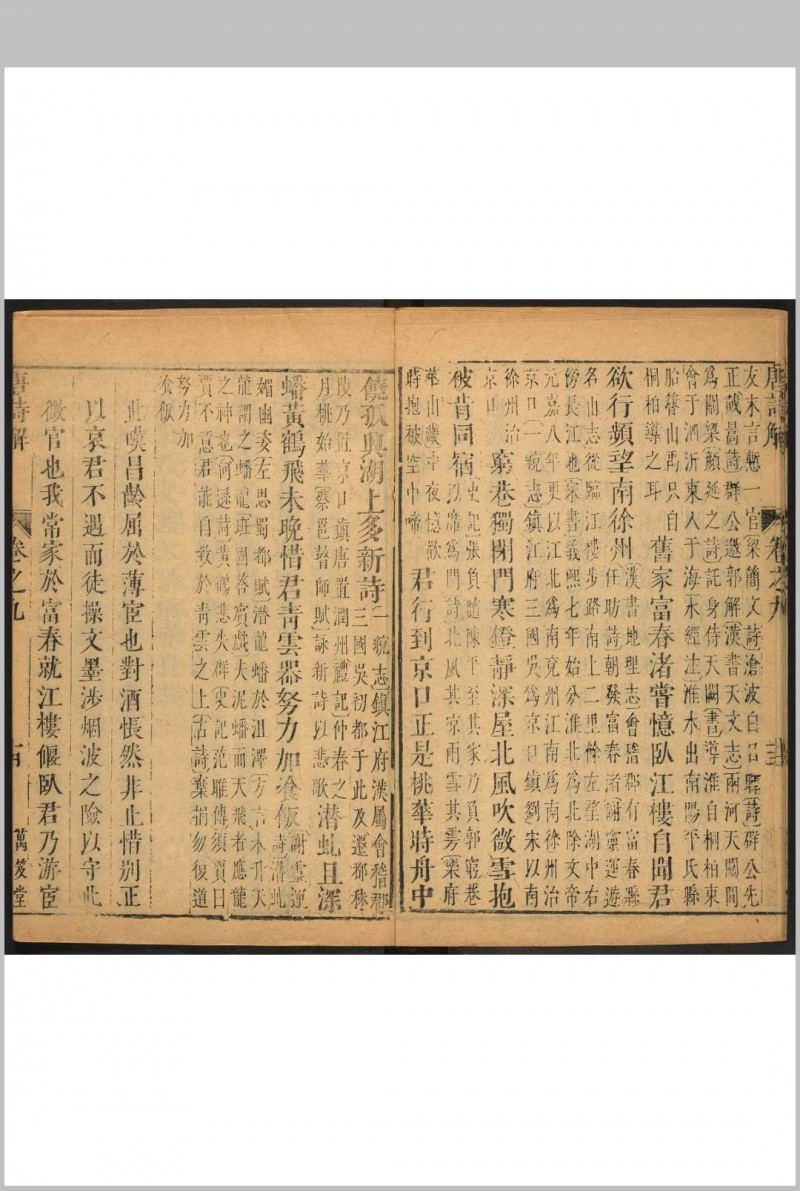 唐詩解 卷之九 十三
友未言慙一官梁簡文詩滄波白日暉詩群公先
正戴暠詩群公邀郭解漢書天文志兩河天闕間
爲關梁顏延之詩託身侍天闕書導淮自桐柏東
會于泗沂東入于海水經注淮水出南陽平氏縣
胎簪山禹只自
桐柏導之耳
舊家富春渚嘗憶臥江樓自聞君
欲行頻望南徐州
漢書地理志會稽郡有富春縣
任昉詩朝發富春渚謝靈運遊
名山志從臨江樓步路南上二里餘左望湖中右
傍長江也宋書義熙七年始分淮北爲北徐文帝
元嘉八年更以江北爲南兗州江南爲南徐州治
京口一統志鎮江府三國吳爲京口鎮劉宋以南
徐州治
京口
窮巷獨閉門寒鐙靜深屋北風吹微雪抱
被肯同宿
史記張負隨陳平至其家乃負郭窮巷
以席爲門詩北風其凉雨雪其雱樂府
華山畿中夜憶歡
時抱被空中啼
君行到京口正是桃華時舟中
饒孤興湖上多新詩
一統志鎮江府漢屬會稽郡
三國吳初都于此及遷都秣
陵乃置京口鎮唐置潤州禮記仲春之
月桃始華蔡邕瞽師賦詠新詩以悲歌
潛虬且深
蟠黃鶴飛未晚惜君青雲器努力加餐飯
謝靈運
詩潛虬
媚幽姿左思蜀都賦潛龍蟠於沮澤方言未升天
龍謂之蟠龍班固答賓戲夫泥蟠而天飛者應龍
之神也何遜詩黃鵠悲失群史記范雎傳須賈曰
賈不意君能自致於青雲之上古詩棄捐勿復道
努力加
餐飯
此嘆昌齡屈於薄宦也對酒悵然非止惜別正
以哀君不遇而徒操文墨涉烟波之險以守此
微官也我常家於富春就江樓偃臥君乃游宦
唐詩解 卷之九 十四 萬笈堂